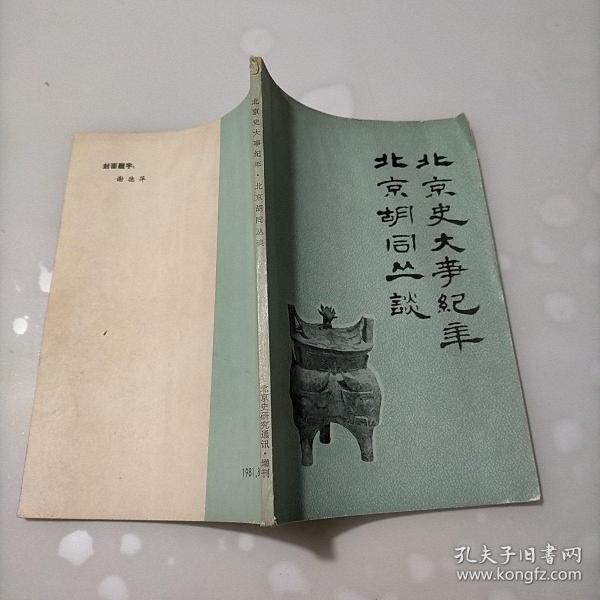 北京史大事紀年
北京胡同丛談
北京史大事纪年·北京胡同丛谈
北京史研究通讯·增刊
1981.
封面题字：
谢德萍
孔夫子旧书网
www.kongfz.com